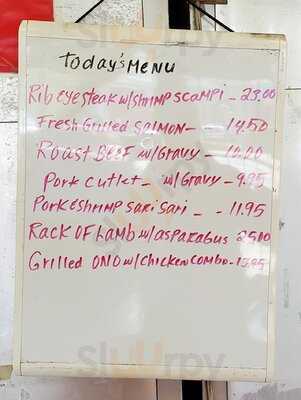 Today's Menu
Ribeye steak w/shrimp scampi - 23.00
Fresh Grilled Salmon - - 14.50
Roast Beef w/Gravy - 10.00
Pork cutlet - w/Gravy - 9.95
Pork & shrimp sari sari - - 11.95
Rack of Lamb w/asparagus 25.00
Grilled ONO w/chicken combo - 15.95
sluurpy